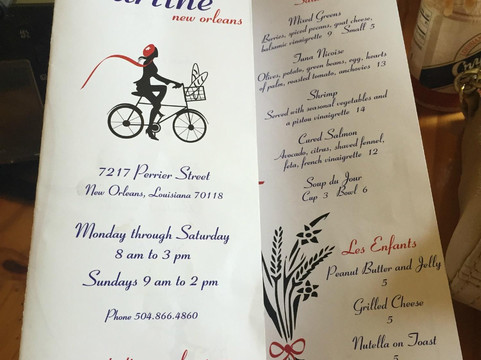 new orleans
7217 Perrier Street
New Orleans, Louisiana 70118
Monday through Saturday
8 am to 3 pm
Sundays 9 am to 2 pm
Phone 504.866.4860
Mixed Greens
Berries, spiced pecans, goat cheese,
balsamic vinaigrette 9 Small 5
Tuna Nicoise
Olives, potato, green beans, egg, hearts
of palm, roasted tomato, anchovies 13
Shrimp
Served with seasonal vegetables and
a pistou vinaigrette 14
Cured Salmon
Avocado, citrus, shaved fennel,
feta, french vinaigrette 12
Soup du Jour
Cup 3 Bowl 6
Les Enfants
Peanut Butter and Jelly
5
Grilled Cheese
5
Nutella on Toast
5